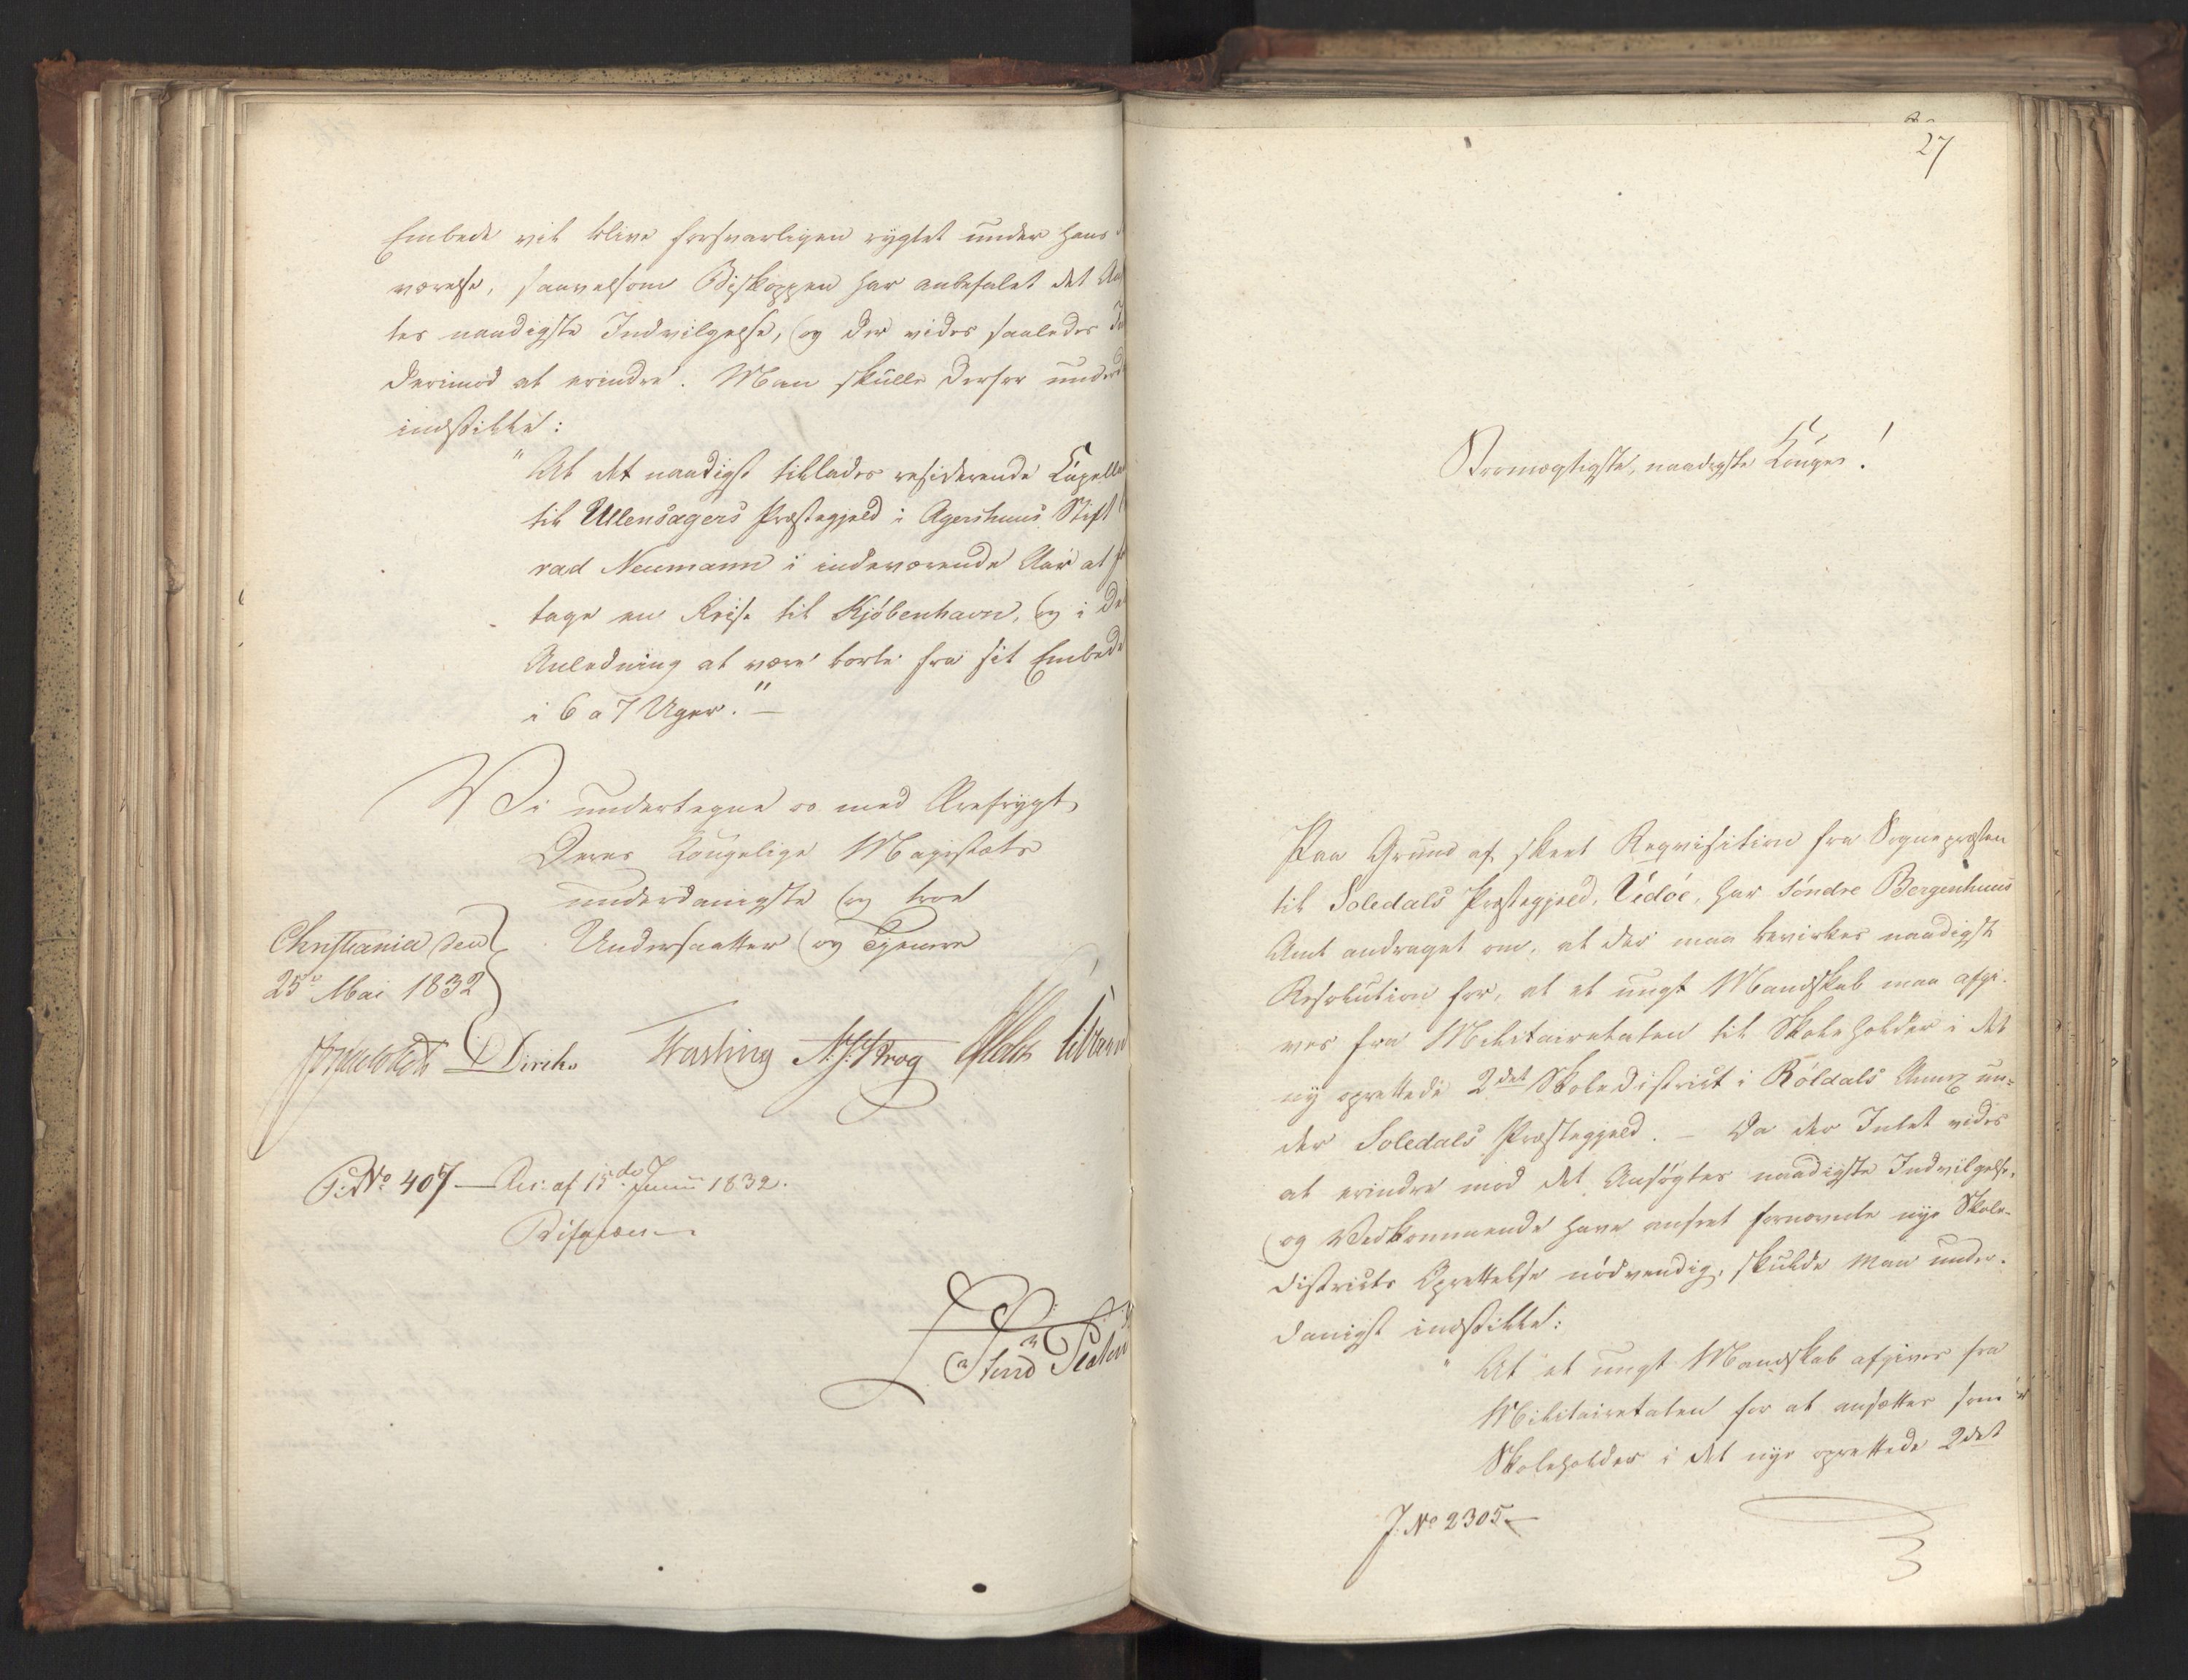 Embede vil blive forsvarligen rygtet under hans
værelse, saavelsom Biskoppen har anbefalet det An
tes naadigste Indvilgelse, og der vides saaledes In
derimod at erindre. Man skulle derfor underd
indstille:
"At det naadigst tillades residerende Capella
til Ullensagers Præstegjeld i Agershuus Stift
rad Neumann i indeværende Aar at fo
tage en Reise til Kjøbenhavn, og i de
Anledning at være borte fra sit Embede
i 6 a 7 Uger."—
Vi undertegne os med Ærefrygt
Deres Kongelige Majestæts
underdanigste og troe
Undersaatter og Tjenere
Christiania den
25de Mai 1832
Diriks N. J. Krog
P. No 407 — Res. af 15de Junii 1832.
Bifalden
27
Stormægtigste, naadigste Konge!
Paa Grund af skeet Reqvisition fra Sognepræsten
til Soledals Præstegjeld, Uedóe, har Søndre Bergenhuus
Amt andraget om, at der maa bevirkes naadigst
Resolution for, at et ungt Mandskab maa afgi-
ves fra Militairetaten til Skoleholder i det
ny oprettede 2det Skoledistrict i Røldals Annex un-
der Soledals Præstegjeld. — Da der Intet vides
at erindre mod det Ansøgtes naadigste Indvilgelse,
og Vedkommende have anseet fornævnte nye Skole-
districts Oprettelse nødvendig, skulde man under-
danigst indstille:
"At et ungt Mandskab afgives fra
Militairetaten for at ansættes som
Skoleholder i det nye oprettede 2det
J. No 2305 —